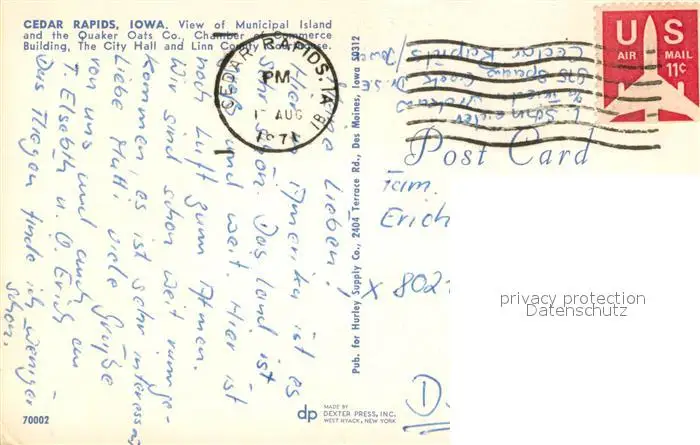 CEDAR RAPIDS, IOWA. View of Municipal Island
and the Quaker Oats Co., Chamber of Commerce
Building, The City Hall and Linn County Courthouse.
CEDAR RAPIDS, IA
PM
AUG
1971
U S
AIR MAIL
11¢
Post Card
Ihr Lieben!
Hier in Amerika ist es
sehr schön. Das Land ist
groß und weit. Hier ist
noch Luft zum Atmen.
Wir sind schon weit rumge-
kommen, es ist sehr interessant
Liebe Mutti viele Grüße
von uns und auch
T. Elsbeth u. O. Erich
Das Fliegen finde ich weniger
schön.
Fam.
Erich
X 802
D
Pub. for Hurley Supply Co., 2404 Terrace Rd., Des Moines, Iowa 50312
L. Schneider
Cedar Rapids
70002
dp MADE BY
DEXTER PRESS, INC.
WEST NYACK, NEW YORK
privacy protection
Datenschutz